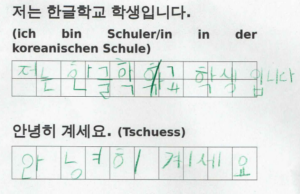 저는 한글학교 학생입니다.
(ich bin Schuler/in in der
koreanischen Schule)
저는 한글학교 학생입니다
안녕히 계세요. (Tschuess)
안녕히 계세요